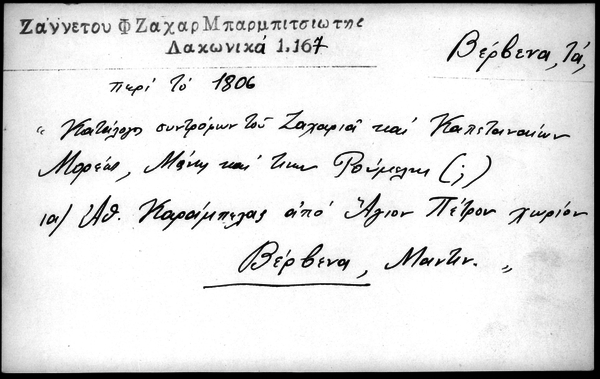 Ζαννετου Φ Ζαχαρ Μπαρμπιτσιωτης
Λακωνικά 1.167
Βέρβενα, τά,
περί τό 1806
"Κατάλογος συντρόμων τοῦ Ζαχαριᾶ καί Καπεταναίων
Μορέως, Μάνης καί τινων Ρούμελης (;)
ια) Ἀθ. Καράμπελας ἀπό Ἅγιον Πέτρον χωρίον
Βέρβενα, Μαντιν. "